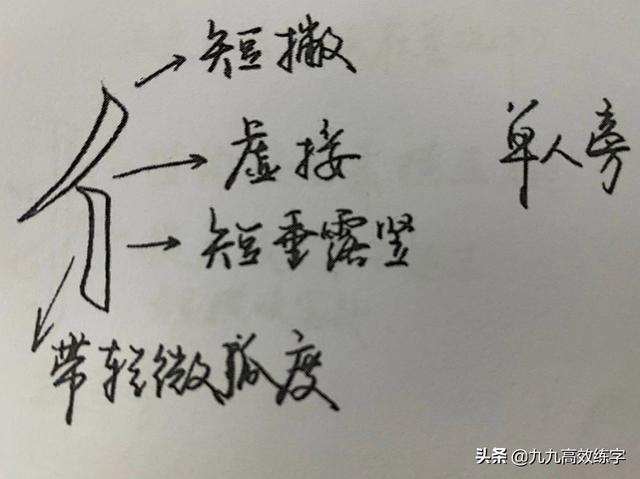 短撇
虚接
单人旁
短垂露竖
带轻微弧度
头条 @九九高效练字